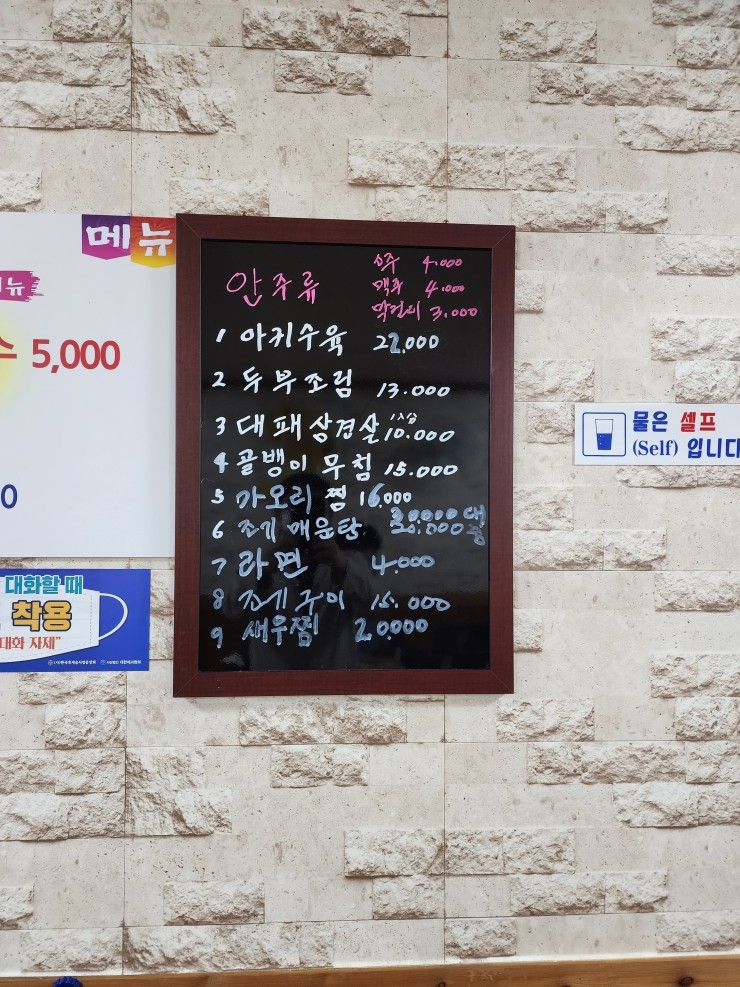 메뉴
뉴
스 5,000
0
안주류
소주 4.000
맥주 4.000
막걸리 3.000
1 아귀수육 22,000
2 두부조림 13.000
3 대패삼겹살 1인분 10.000
4 골뱅이 무침 15.000
5 가오리 찜 16,000
6 조기 매운탕 30000 대
중
7 라면 4.000
8 조기구이 15.000
9 새우찜 20,000
물은 셀프
(Self) 입니다
대화할 때
착용
대화 자제"